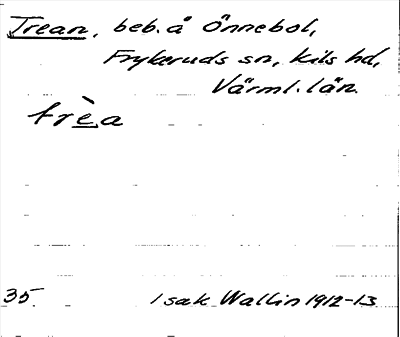 Trean, beb. å Önnebol,
Frykeruds sn, Kils hd,
Värml. län.
trè̱a
35.
Isak Wallin 1912-13